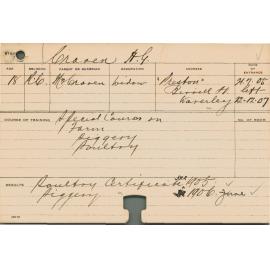 Craven H.G.
AGE RELIGION PARENT OR GUARDIAN OCCUPATION ADDRESS DATE OF ENTRANCE
18 R.C. Mrs Craven Widow "Preston" 24.7.05
Birrell St. left
Waverley 12-12-07
COURSE OF TRAINING Special Course on NO. OF ROOM
Farm
Piggery
Poultry
RESULTS Poultry Certificate 1905
Piggery " 1906 June